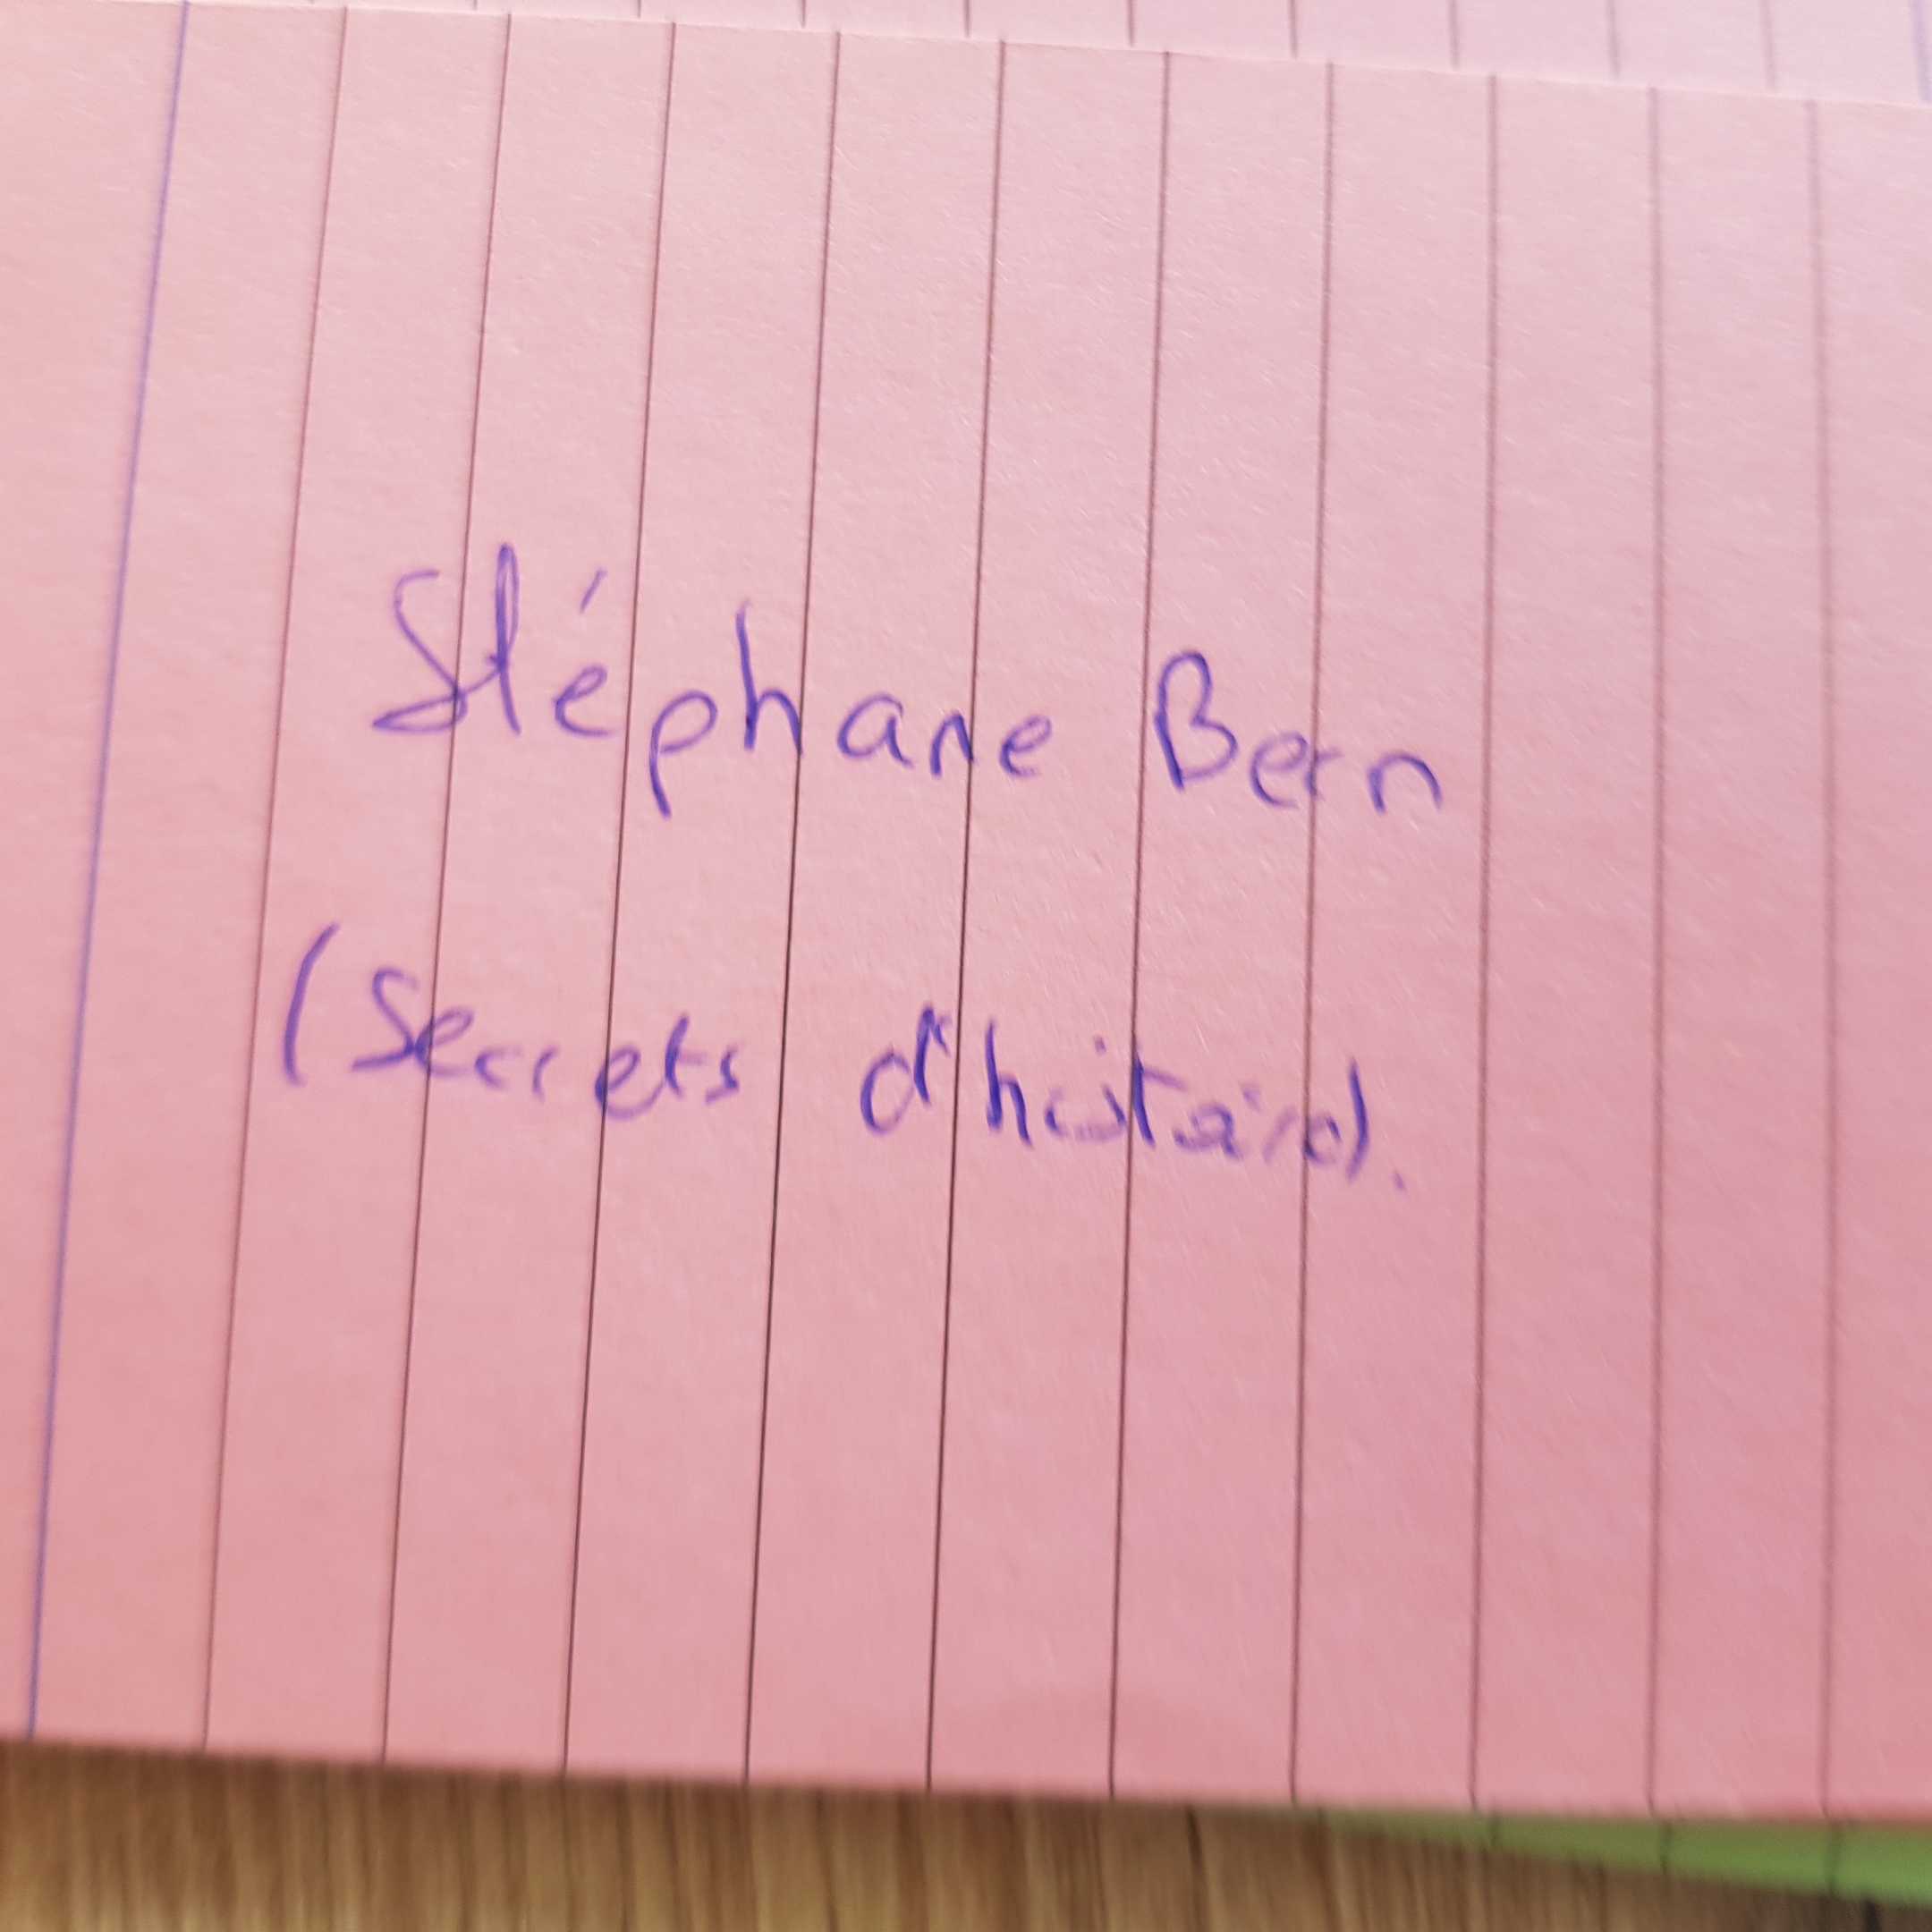 Stéphane Bern
(Secrets d'histoire).